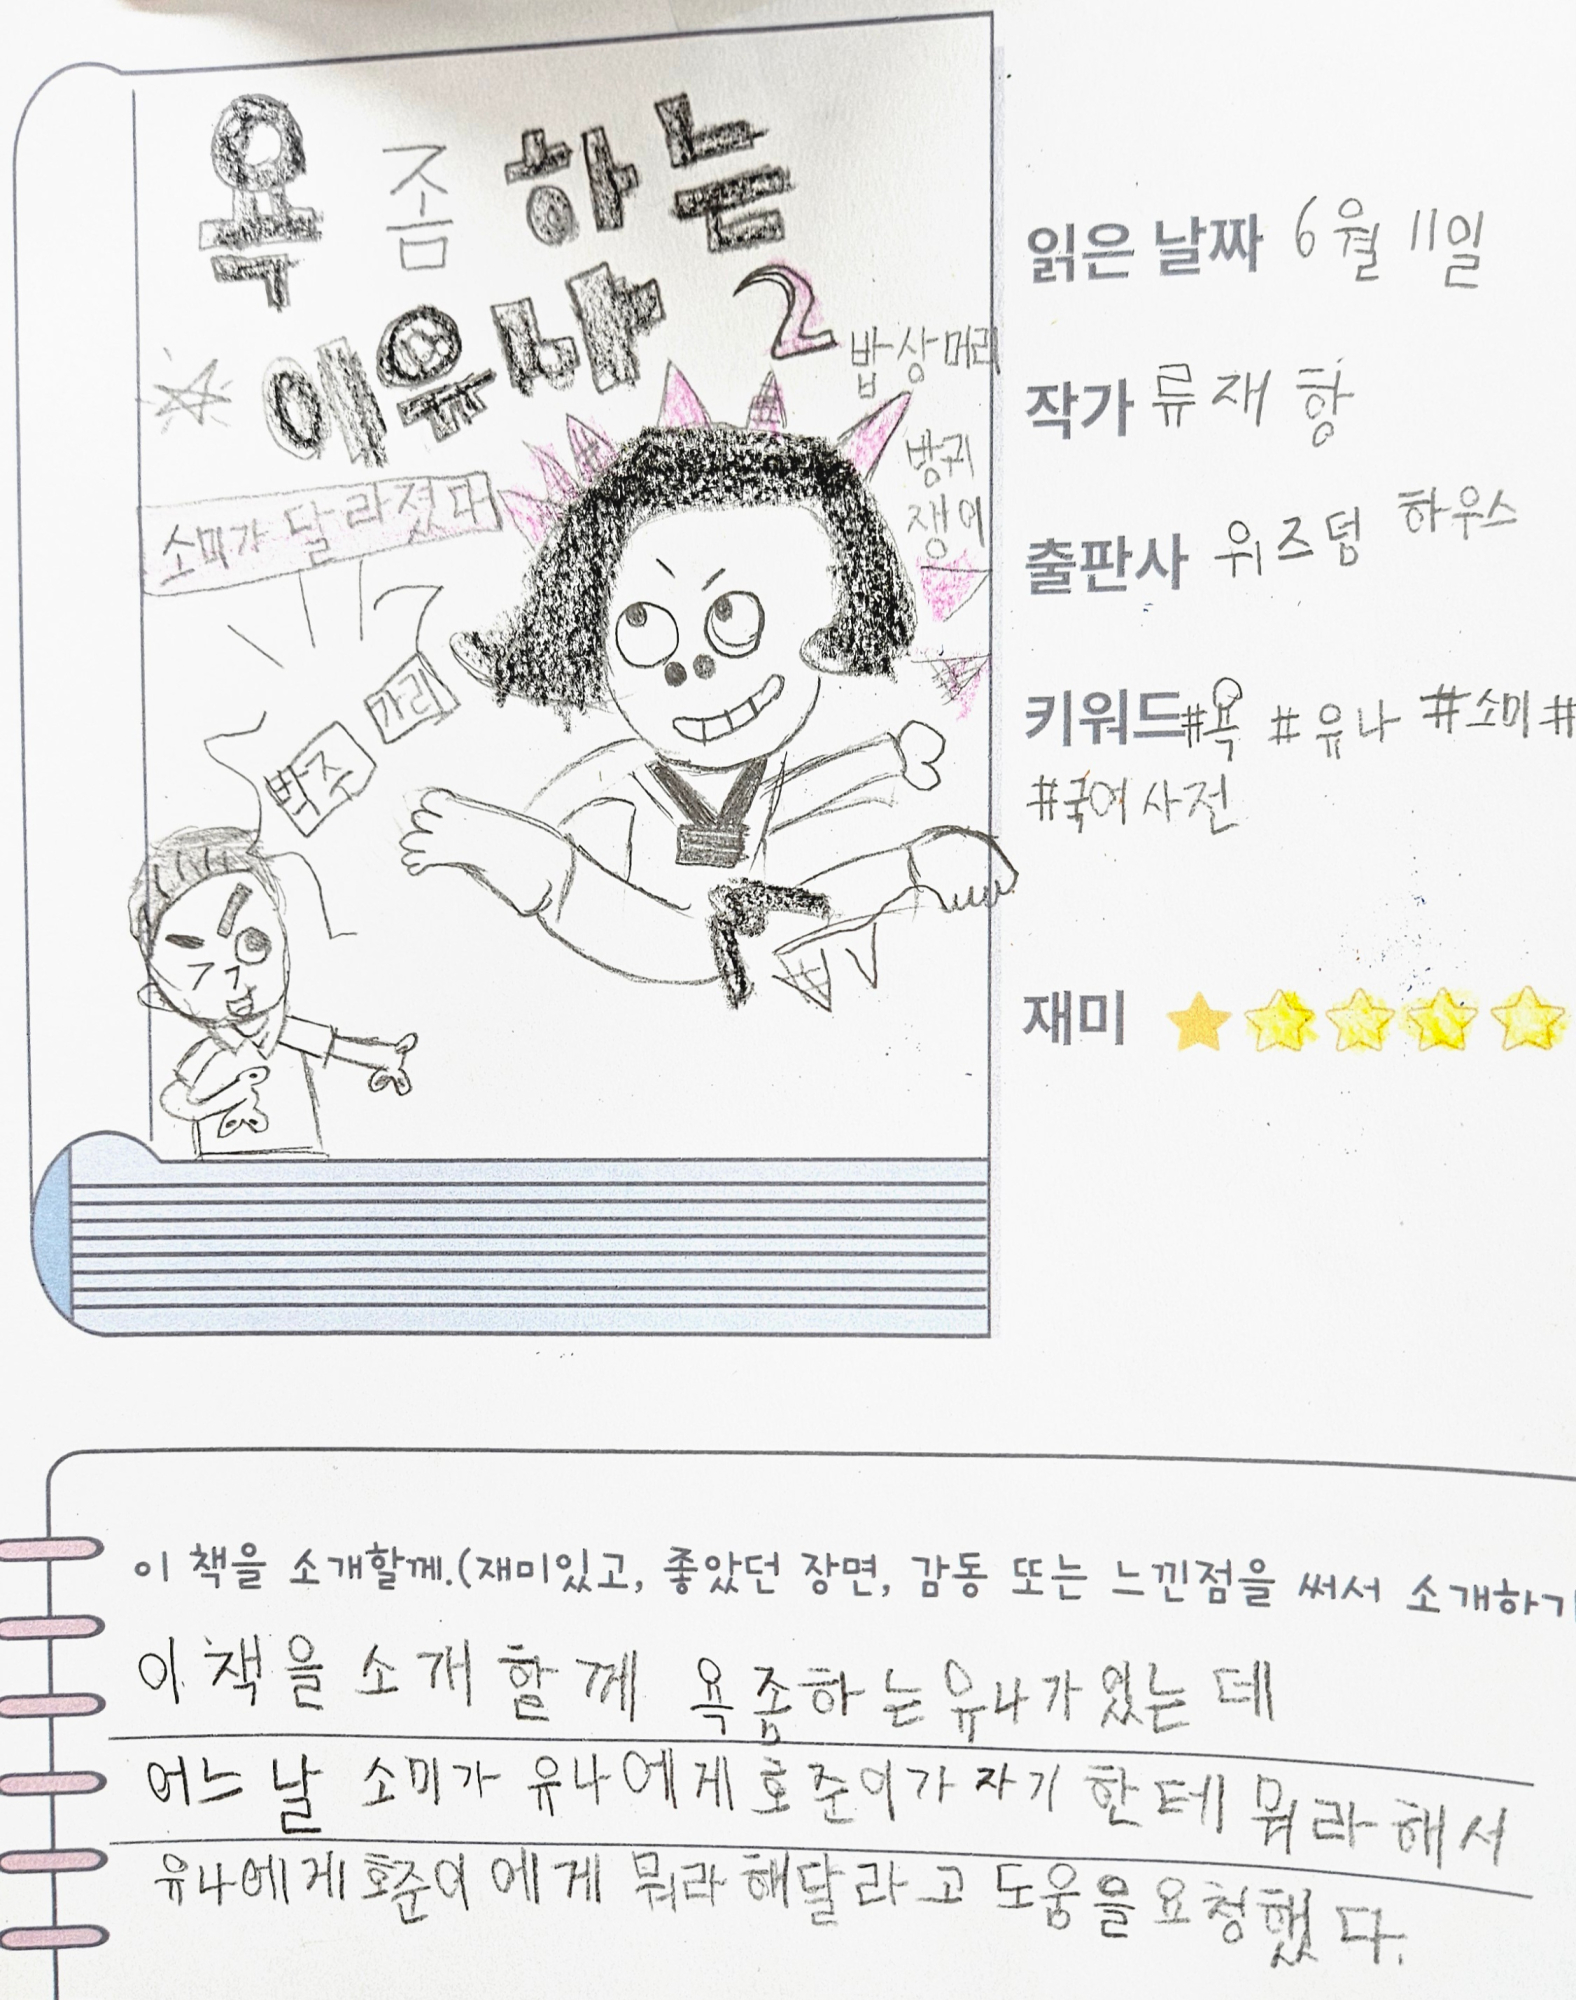 욕 좀 하는
이유나 2
소미가 달라졌다
밥상머리
방귀
쟁이
박주
가리
읽은 날짜 6월 11일
작가 류재향
출판사 위즈덤 하우스
키워드 #욕 #유나 #소미 #
#국어사전
재미
이 책을 소개할께.(재미있고, 좋았던 장면, 감동 또는 느낀점을 써서 소개하기
이 책을 소개할께 욕좀하는유나가있는데
어느날 소미가 유나에게 호준이가 자기한테 뭐라해서
유나에게호준이에게 뭐라해달라고 도움을요청했다.